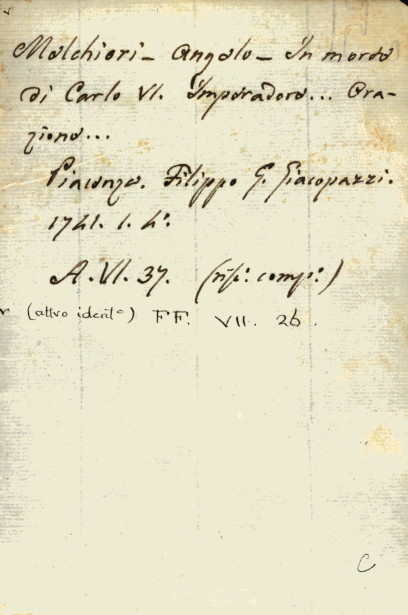 Melchiori - Angelo - In morte
di Carlo VI. Imperadore... Ora-
zione...
Piacenza. Filippo G. Giacopazzi.
1741. 1. 4º.
A. VI. 37. (risp. comp.)
(altro identº) FF. VII. 26.
C